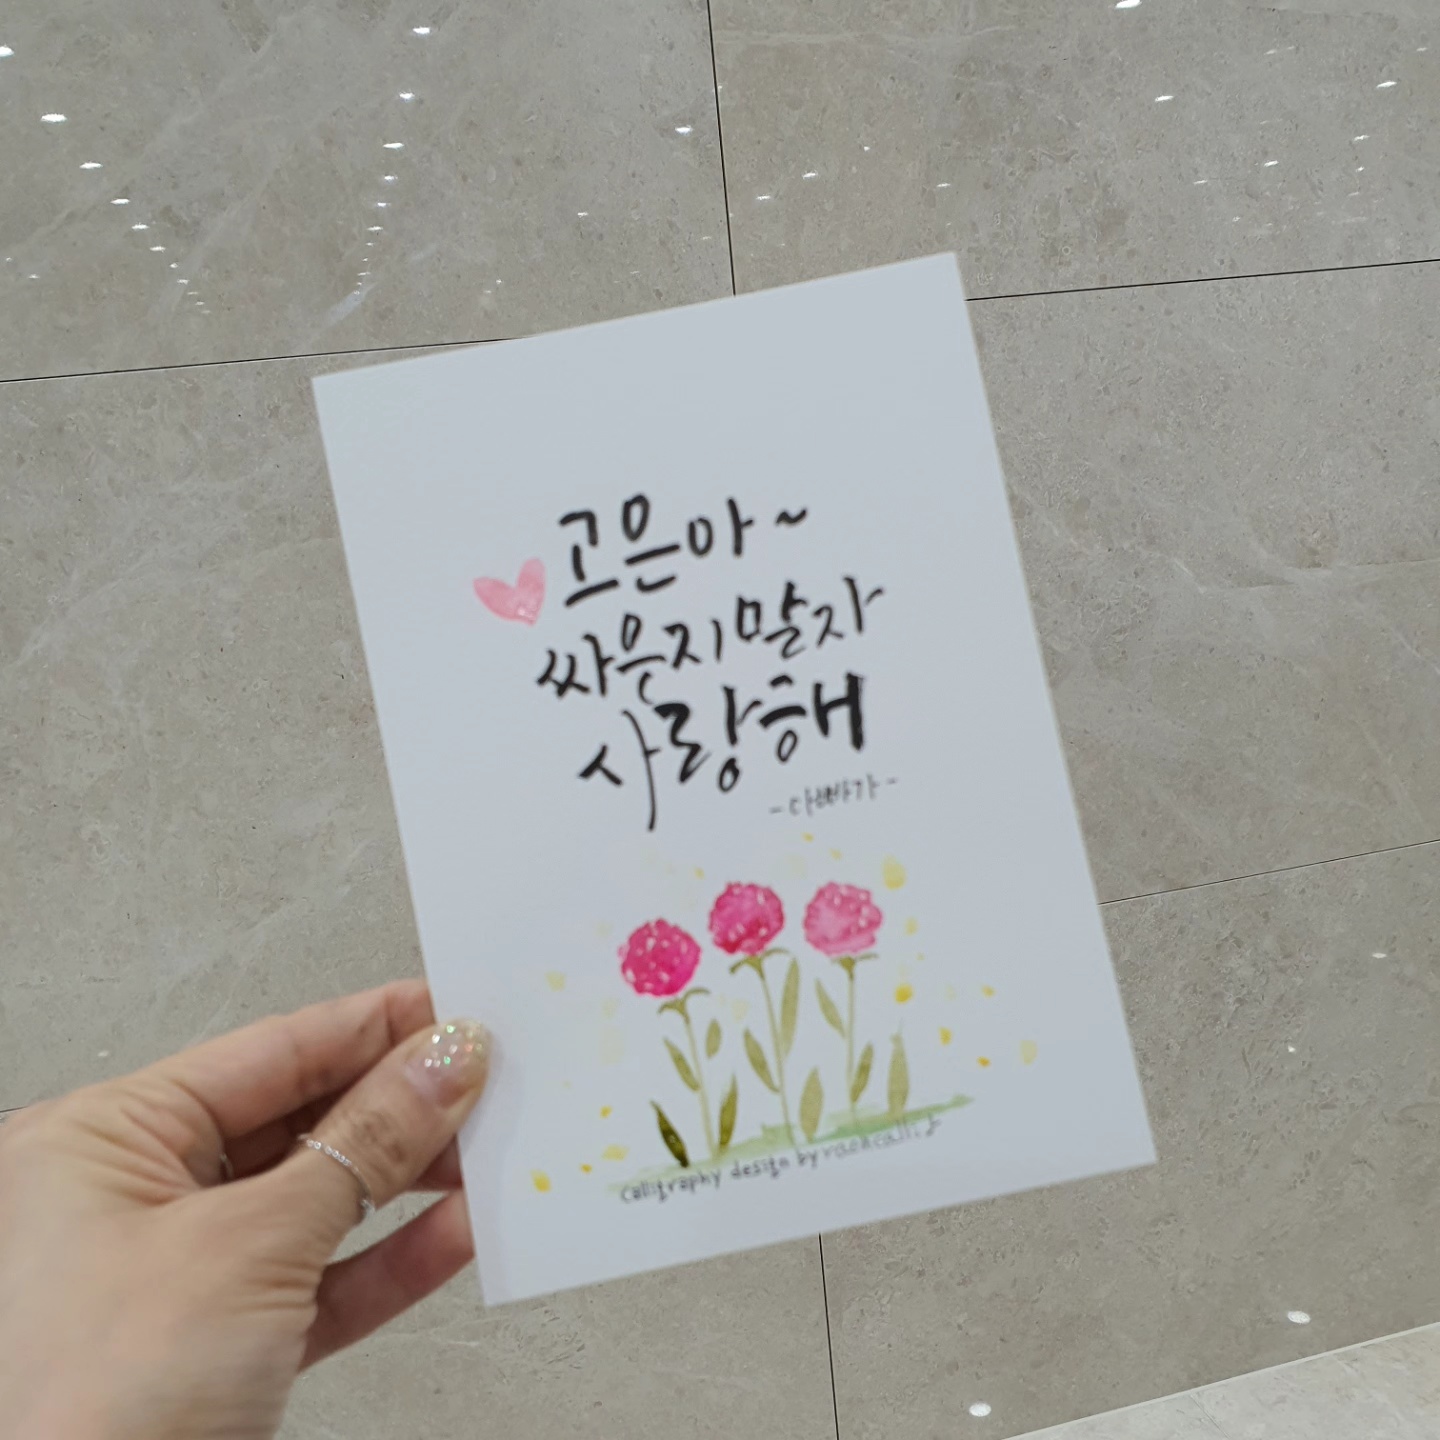 고은아~
싸운지말자
사랑해
calligraphy design by raoncalli♪